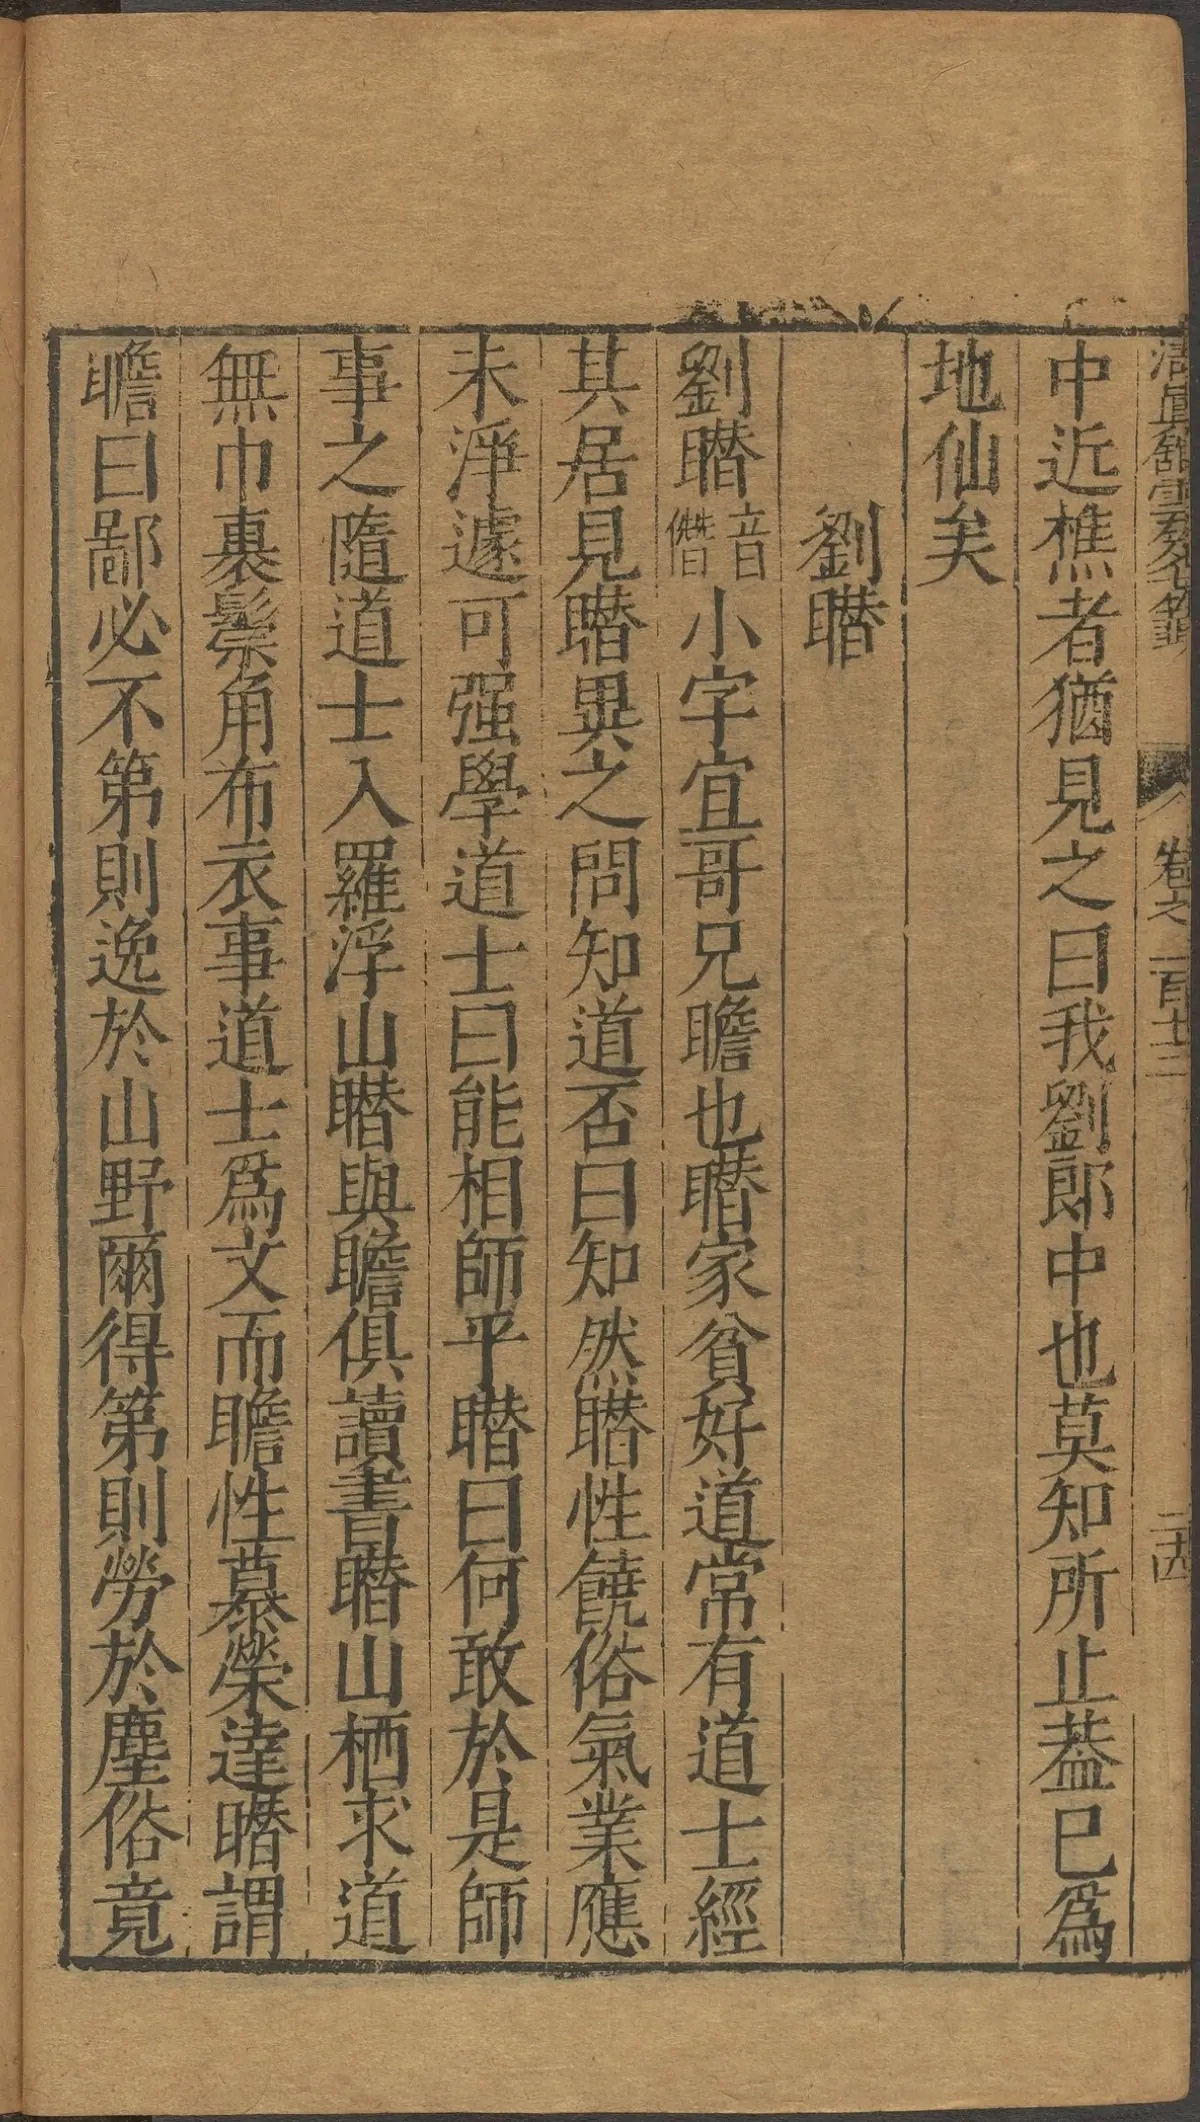 清眞館雲笈七籤 卷之一百十三 二四
中近樵者猶見之曰我劉郎中也莫知所止葢巳爲
地仙矣
劉䁮
劉䁮音僭小字宜哥兄瞻也䁮家貧好道常有道士經
其居見䁮異之問知道否曰知然䁮性饒俗氣業應
未淨遽可强學道士曰能相師乎䁮曰何敢於是師
事之隨道士入羅浮山䁮與瞻俱讀書䁮山栖求道
無巾裹鬃角布衣事道士爲文而瞻性慕榮達䁮謂
瞻曰鄙必不第則逸於山野爾得第則勞於塵俗竟